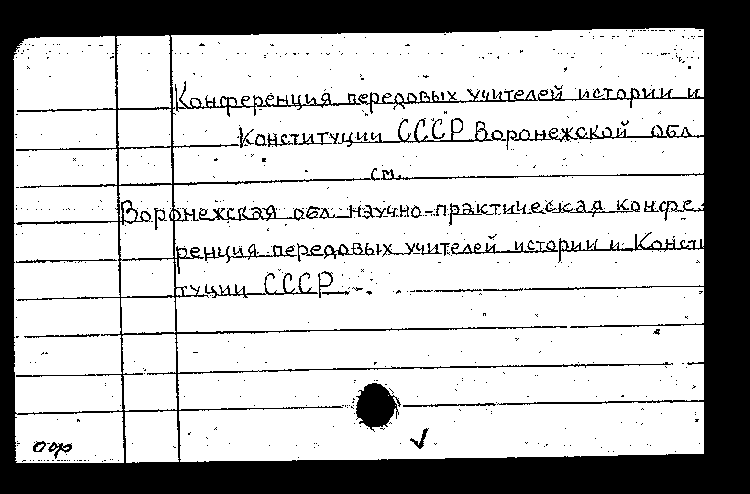 Конференция передовых учителей истории и
Конституции СССР Воронежской обл.
см.
Воронежская обл. научно-практическая конфе-
ренция передовых учителей истории и Консти
туции СССР